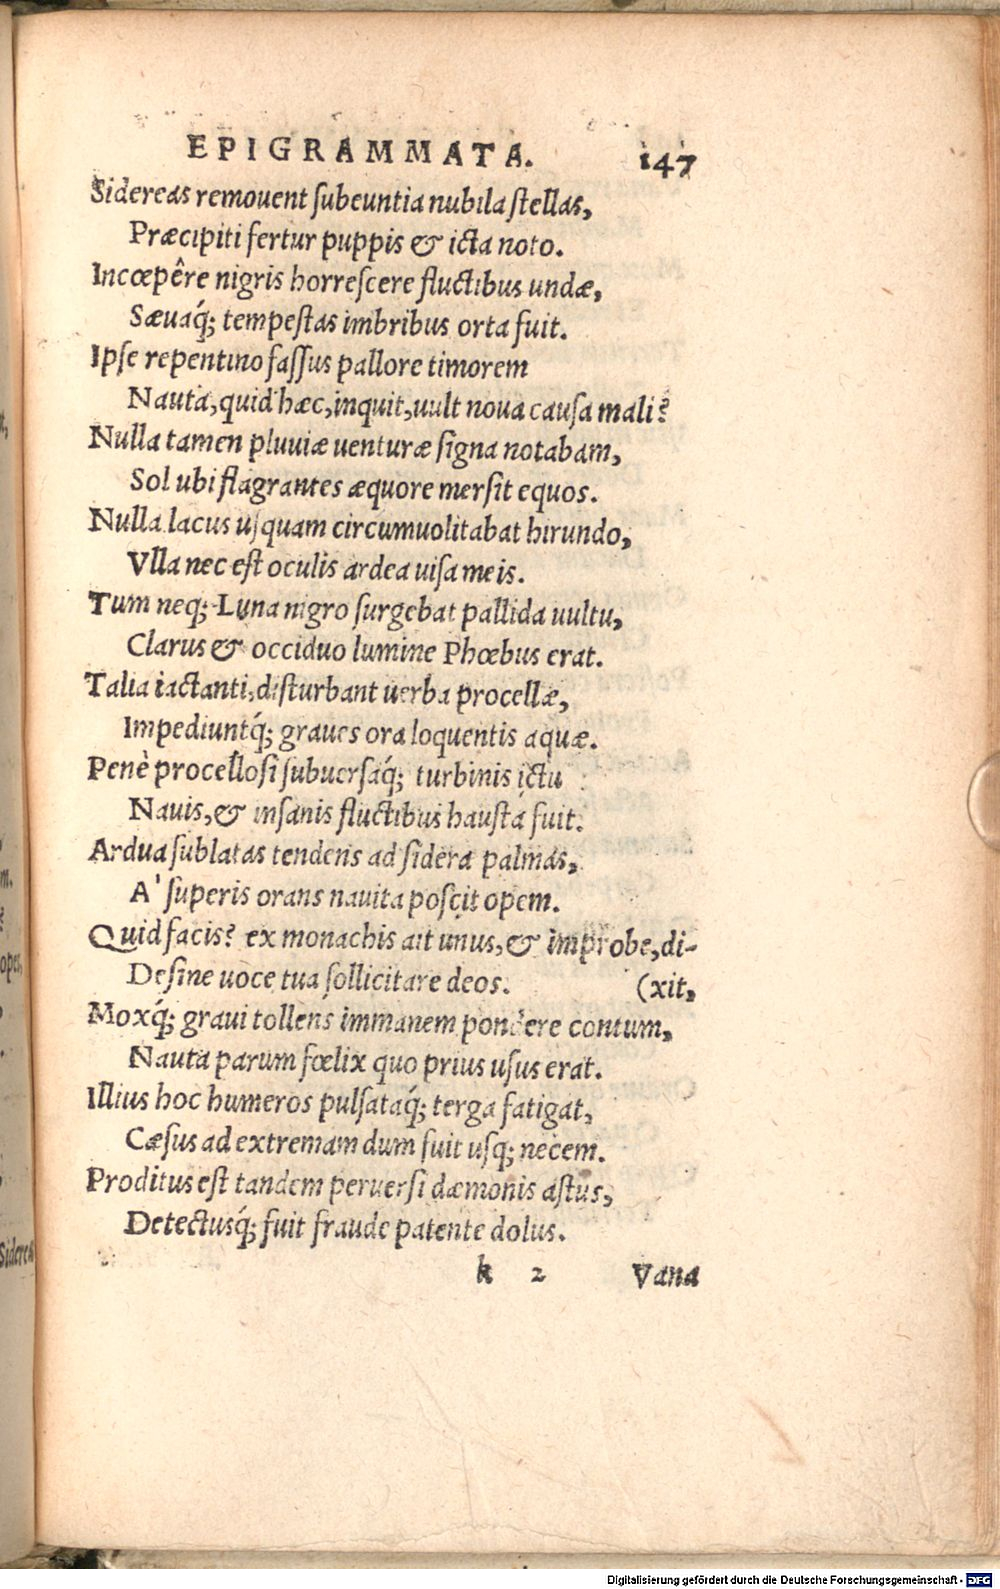 EPIGRAMMATA. 147
Sidereas remouent subeuntia nubila stellas,
Præcipiti fertur puppis & icta noto.
Incœpêre nigris horrescere fluctibus undæ,
Sæuaq́; tempestas imbribus orta fuit.
Ipse repentino fassus pallore timorem
Nauta, quid hæc, inquit, uult noua causa mali?
Nulla tamen pluuiæ uenturæ signa notabam,
Sol ubi flagrantes æquore mersit equos.
Nulla lacus usquam circumuolitabat hirundo,
Vlla nec est oculis ardea uisa meis.
Tum neq; Luna nigro surgebat pallida uultu,
Clarus & occiduo lumine Phœbus erat.
Talia iactanti, disturbant uerba procellæ,
Impediuntq́; graues ora loquentis aquæ.
Penè procellosi subuersaq́; turbinis ictu
Nauis, & insanis fluctibus hausta fuit.
Ardua sublatas tendens ad sidera palmas,
A' superis orans nauita poscit opem.
Quid facis? ex monachis ait unus, & improbe, di-
Desine uoce tua sollicitare deos. (xit,
Moxq́; graui tollens immanem pondere contum,
Nauta parum fœlix quo prius usus erat.
Illius hoc humeros pulsataq́; terga fatigat,
Cæsus ad extremam dum fuit usq; necem.
Proditus est tandem peruersi dæmonis astus,
Detectusq́; fuit fraude patente dolus.
k 2 Vana
Digitalisierung gefördert durch die Deutsche Forschungsgemeinschaft - DFG